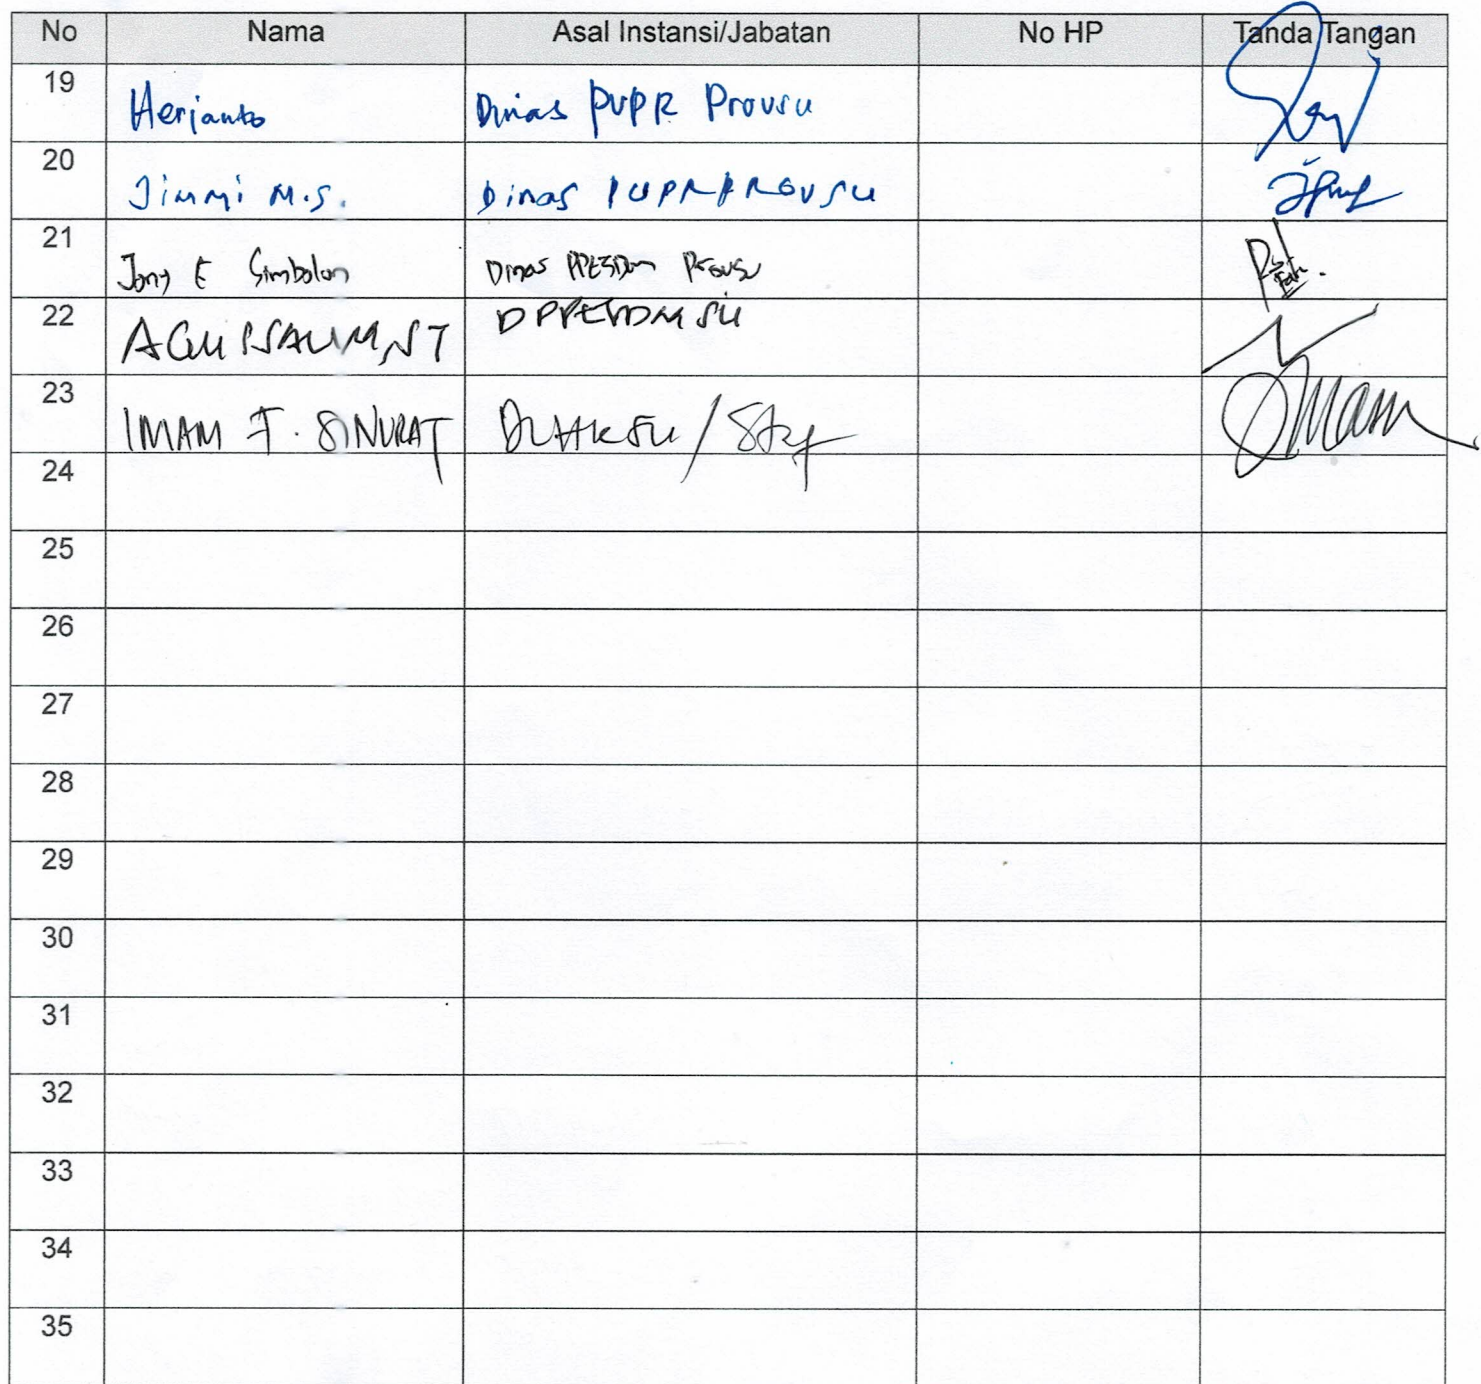 No Nama Asal Instansi/Jabatan No HP Tanda Tangan
19 Herjanto Dinas PUPR Provsu
20 Jimmi M.S. Dinas PUPR PROVSU
21 Jony E Simbolon Dinas Provsu
22 AGUS SALIM, ST
23 IMAM F. SINURAT / Staf
24
25
26
27
28
29
30
31
32
33
34
35